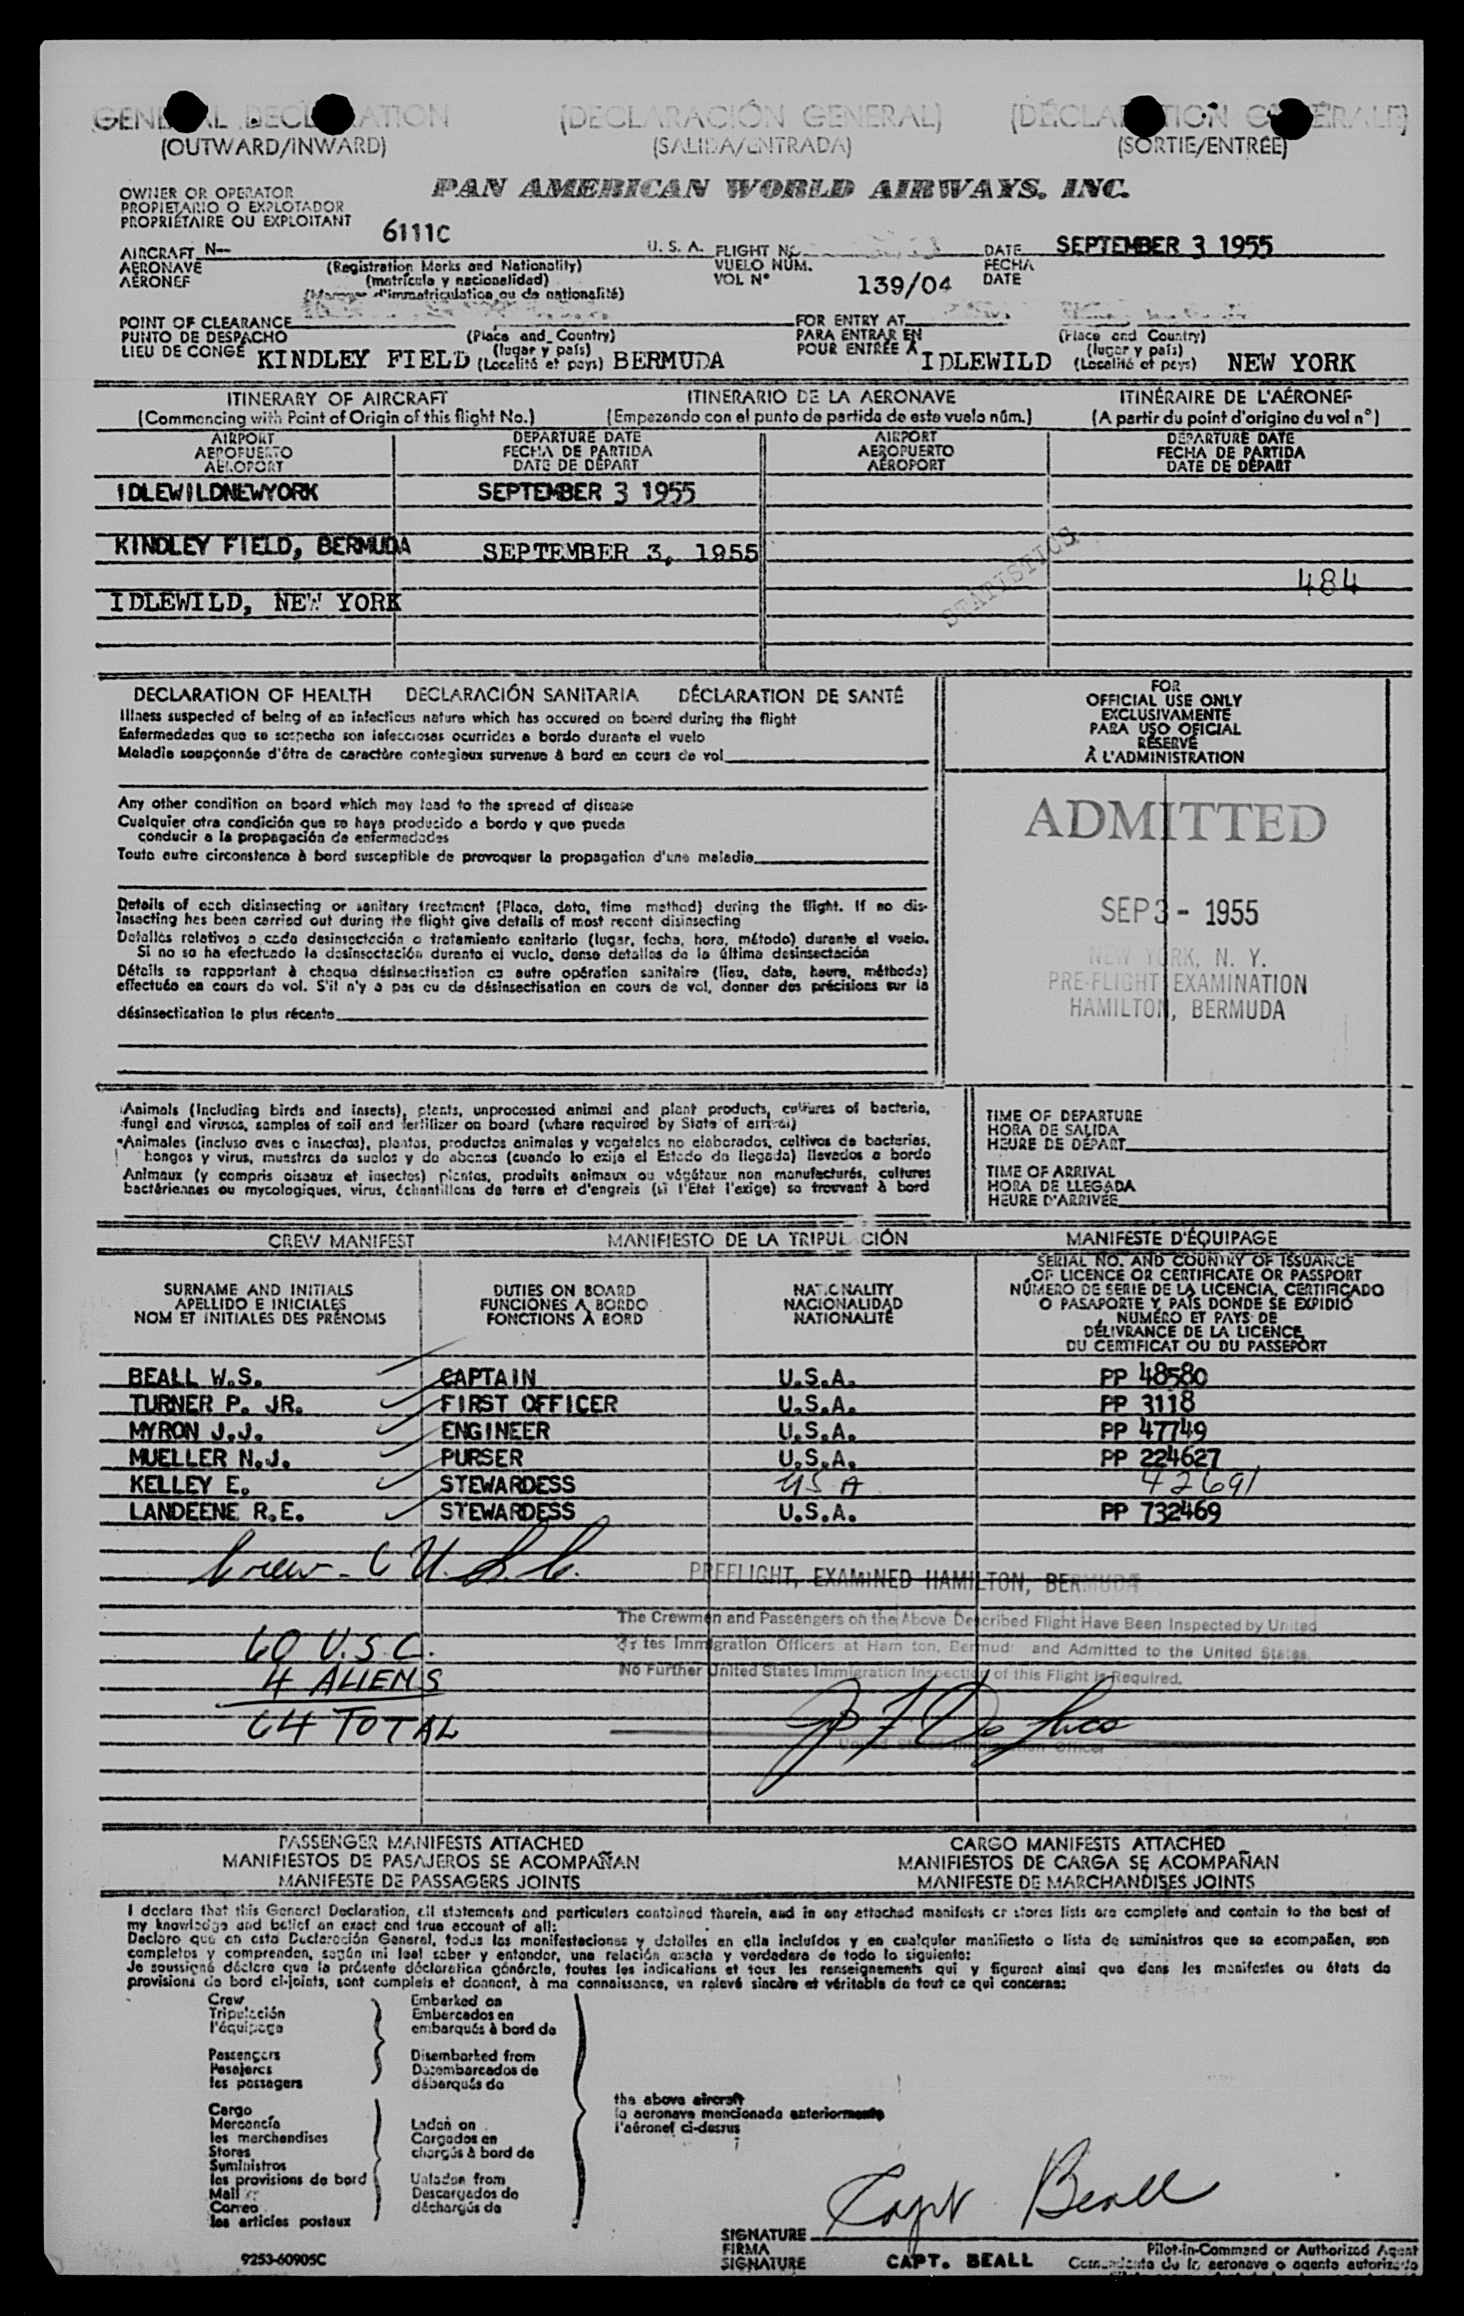 GENERAL DECLARATION (DECLARACIÓN GENERAL) (DÉCLARATION GÉNÉRALE)
(OUTWARD/INWARD) (SALIDA/ENTRADA) (SORTIE/ENTRÉE)
OWNER OR OPERATOR
PROPIETARIO O EXPLOTADOR
PROPRIÉTAIRE OU EXPLOITANT
PAN AMERICAN WORLD AIRWAYS, INC.
AIRCRAFT N-- 6111C U. S. A.
AERONAVE
AÉRONEF
(Registration Marks and Nationality)
(matrícula y nacionalidad)
(Marques d'immatriculation ou de nationalité)
FLIGHT NO.
VUELO NÚM.
VOL Nº 139/04
DATE SEPTEMBER 3 1955
FECHA
DATE
POINT OF CLEARANCE
PUNTO DE DESPACHO
LIEU DE CONGÉ KINDLEY FIELD BERMUDA
(Place and Country)
(lugar y país)
(Localité et pays)
FOR ENTRY AT
PARA ENTRAR EN
POUR ENTRÉE À IDLEWILD NEW YORK
(Place and Country)
(lugar y país)
(Localité et pays)
ITINERARY OF AIRCRAFT ITINERARIO DE LA AERONAVE ITINÉRAIRE DE L'AÉRONEF
(Commencing with Point of Origin of this flight No.) (Empezando con el punto de partida de este vuelo núm.) (A partir du point d'origine du vol nº)
AIRPORT DEPARTURE DATE AIRPORT DEPARTURE DATE
AEROPUERTO FECHA DE PARTIDA AEROPUERTO FECHA DE PARTIDA
AÉROPORT DATE DE DÉPART AÉROPORT DATE DE DÉPART
IDLEWILDNEWYORK SEPTEMBER 3 1955
KINDLEY FIELD, BERMUDA SEPTEMBER 3, 1955
STATISTICS
484
IDLEWILD, NEW YORK
DECLARATION OF HEALTH DECLARACIÓN SANITARIA DÉCLARATION DE SANTÉ
Illness suspected of being of an infectious nature which has occured on board during the flight
Enfermedades que se sospecha son infecciosas ocurridas a bordo durante el vuelo
Maladie soupçonnée d'être de caractère contagieux survenue à bord en cours de vol
Any other condition on board which may lead to the spread of disease
Cualquier otra condición que se haya producido a bordo y que pueda
conducir a la propagación de enfermedades
Toute autre circonstance à bord susceptible de provoquer la propagation d'une maladie
Details of each disinsecting or sanitary treatment (Place, date, time method) during the flight. If no dis-
insecting has been carried out during the flight give details of most recent disinsecting
Detalles relativos a cada desinsectación o tratamiento sanitario (lugar, fecha, hora, método) durante el vuelo.
Si no se ha efectuado la desinsectación durante el vuelo, dense detalles de la última desinsectación
Détails se rapportant à chaque désinsectisation ou autre opération sanitaire (lieu, date, heure, méthode)
effectuée en cours de vol. S'il n'y a pas eu de désinsectisation en cours de vol, donner des précisions sur la
désinsectisation la plus récente
FOR
OFFICIAL USE ONLY
EXCLUSIVAMENTE
PARA USO OFICIAL
RÉSERVÉ
À L'ADMINISTRATION
ADMITTED
SEP 3 - 1955
NEW YORK, N. Y.
PRE-FLIGHT EXAMINATION
HAMILTON, BERMUDA
Animals (Including birds and insects), plants, unprocessed animal and plant products, cultures of bacteria,
fungi and viruses, samples of soil and fertilizer on board (where required by State of arrival)
Animales (incluso aves e insectos), plantas, productos animales y vegetales no elaborados, cultivos de bacterias,
hongos y virus, muestras de suelos y de abonos (cuando lo exija el Estado de llegada) llevados a bordo
Animaux (y compris oiseaux et insectes) plantes, produits animaux ou végétaux non manufacturés, cultures
bactériennes ou mycologiques, virus, échantillons de terre et d'engrais (si l'Etat l'exige) se trouvant à bord
TIME OF DEPARTURE
HORA DE SALIDA
HEURE DE DÉPART
TIME OF ARRIVAL
HORA DE LLEGADA
HEURE D'ARRIVÉE
CREW MANIFEST MANIFIESTO DE LA TRIPULACIÓN MANIFESTE D'ÉQUIPAGE
SURNAME AND INITIALS
APELLIDO E INICIALES
NOM ET INITIALES DES PRÉNOMS
DUTIES ON BOARD
FUNCIONES A BORDO
FONCTIONS À BORD
NATIONALITY
NACIONALIDAD
NATIONALITÉ
SERIAL NO. AND COUNTRY OF ISSUANCE
OF LICENCE OR CERTIFICATE OR PASSPORT
NÚMERO DE SERIE DE LA LICENCIA, CERTIFICADO
O PASAPORTE Y PAÍS DONDE SE EXPIDIÓ
NUMÉRO ET PAYS DE
DÉLIVRANCE DE LA LICENCE,
DU CERTIFICAT OU DU PASSEPORT
BEALL W.S. CAPTAIN U.S.A. PP 48580
TURNER P. JR. FIRST OFFICER U.S.A. PP 3118
MYRON J.J. ENGINEER U.S.A. PP 47749
MUELLER N.J. PURSER U.S.A. PP 224627
KELLEY E. STEWARDESS US A 42691
LANDEENE R.E. STEWARDESS U.S.A. PP 732469
Crew - 6 U.S.C.
PREFLIGHT, EXAMINED HAMILTON, BERMUDA
The Crewmen and Passengers on the Above Described Flight Have Been Inspected by United
States Immigration Officers at Hamilton, Bermuda and Admitted to the United States.
No Further United States Immigration Inspection of this Flight is Required.
60 U.S.C.
4 ALIENS
64 TOTAL
United States Immigration Officer
PASSENGER MANIFESTS ATTACHED CARGO MANIFESTS ATTACHED
MANIFIESTOS DE PASAJEROS SE ACOMPAÑAN MANIFIESTOS DE CARGA SE ACOMPAÑAN
MANIFESTE DE PASSAGERS JOINTS MANIFESTE DE MARCHANDISES JOINTS
I declare that this General Declaration, all statements and particulars contained therein, and in any attached manifests or stores lists are complete and contain to the best of
my knowledge and belief an exact and true account of all:
Declaro que en esta Declaración General, todas las manifestaciones y detalles en ella incluídos y en cualquier manifiesto o lista de suministros que se acompañen, son
completos y comprenden, según mi leal saber y entender, una relación exacta y verdadera de todo lo siguiente:
Je soussigné déclare que la présente déclaration générale, toutes les indications et tous les renseignements qui y figurent ainsi que dans les manifestes ou états de
provisions de bord ci-joints, sont complets et donnent, à ma connaissance, un relevé sincère et véritable de tout ce qui concerne:
Crew
Tripulación
l'équipage
Passengers
Pasajeros
les passagers
Cargo
Mercancía
les marchandises
Stores
Suministros
les provisions de bord
Mail
Correo
les articles postaux
Embarked on
Embarcados en
embarqués à bord de
Disembarked from
Desembarcados de
débarqués de
Laden on
Cargados en
chargés à bord de
Unladen from
Descargados de
déchargés de
the above aircraft
la aeronave mencionada anteriormente
l'aéronef ci-dessus
Capt Beall
SIGNATURE
FIRMA
SIGNATURE
CAPT. BEALL
Pilot-in-Command or Authorized Agent
Comandante de la aeronave o agente autorizado
9253-60905C